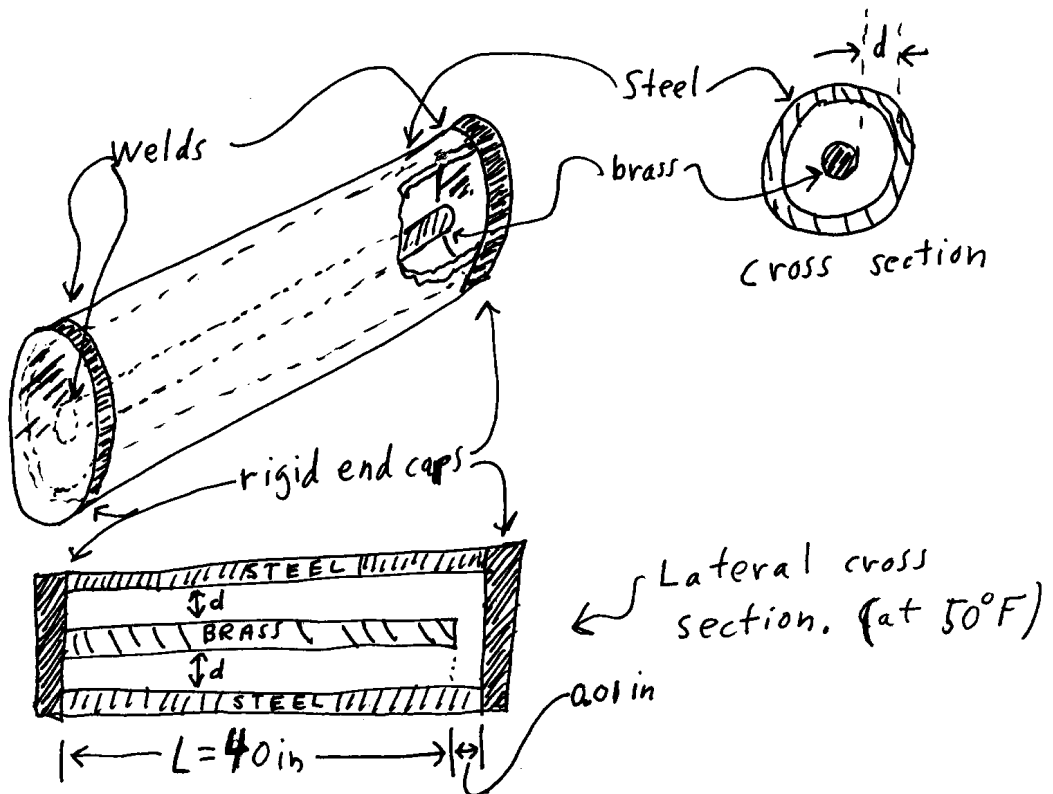 d
Steel
Welds
brass
cross section
rigid end caps
STEEL
d
BRASS
d
STEEL
Lateral cross
section. (at 50°F)
0.01 in
L = 40 in